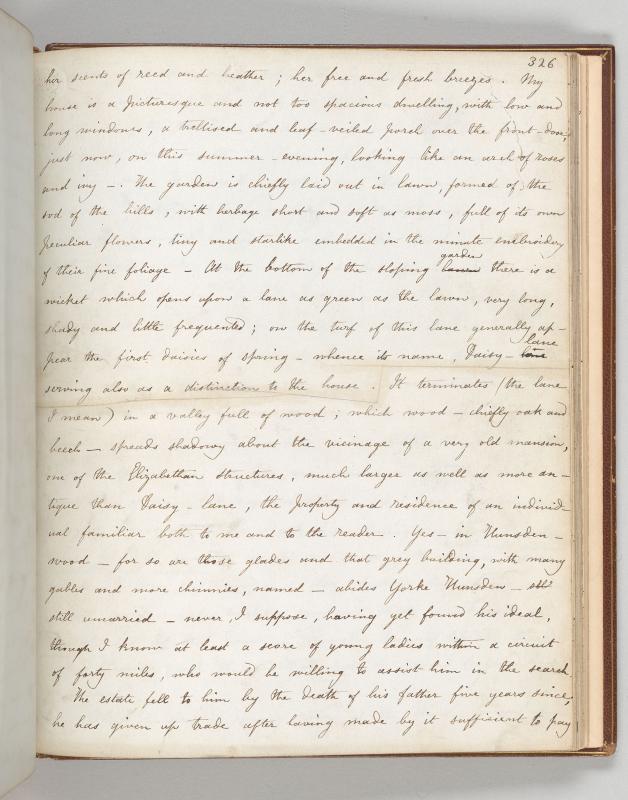 326
her scents of reed and heather ; her free and fresh breezes . My
house is a picturesque and not too spacious dwelling, with low and
long windows, a trellised and leaf-veiled porch over the front-door,
just now, on this summer-evening, looking like an arch of roses
and ivy -. The garden is chiefly laid out in lawn, formed of the
sod of the hills, with herbage short and soft as moss, full of its own
peculiar flowers, tiny and starlike embedded in the minute embroidery
of their fine foliage - At the bottom of the sloping garden there is a
wicket which opens upon a lane as green as the lawn, very long,
shady and little frequented; on the turf of this lane generally ap-
pear the first daisies of spring - whence its name, Daisy-lane
serving also as a distinction to the house . It terminates (the lane
I mean) in a valley full of wood; which wood - chiefly oak and
beech - spreads shadowy about the vicinage of a very old mansion,
one of the Elizabethan structures, much larger as well as more an-
tique than Daisy-lane, the property and residence of an individ-
ual familiar both to me and to the reader. Yes - in Hunsden-
wood - for so are those glades and that grey building, with many
gables and more chimnies, named - abides Yorke Hunsden -
still unmarried - never, I suppose, having yet found his ideal,
though I know at least a score of young ladies within a circuit
of forty miles, who would be willing to assist him in the search
The estate fell to him by the death of his father five years since,
he has given up trade after having made by it sufficient to pay